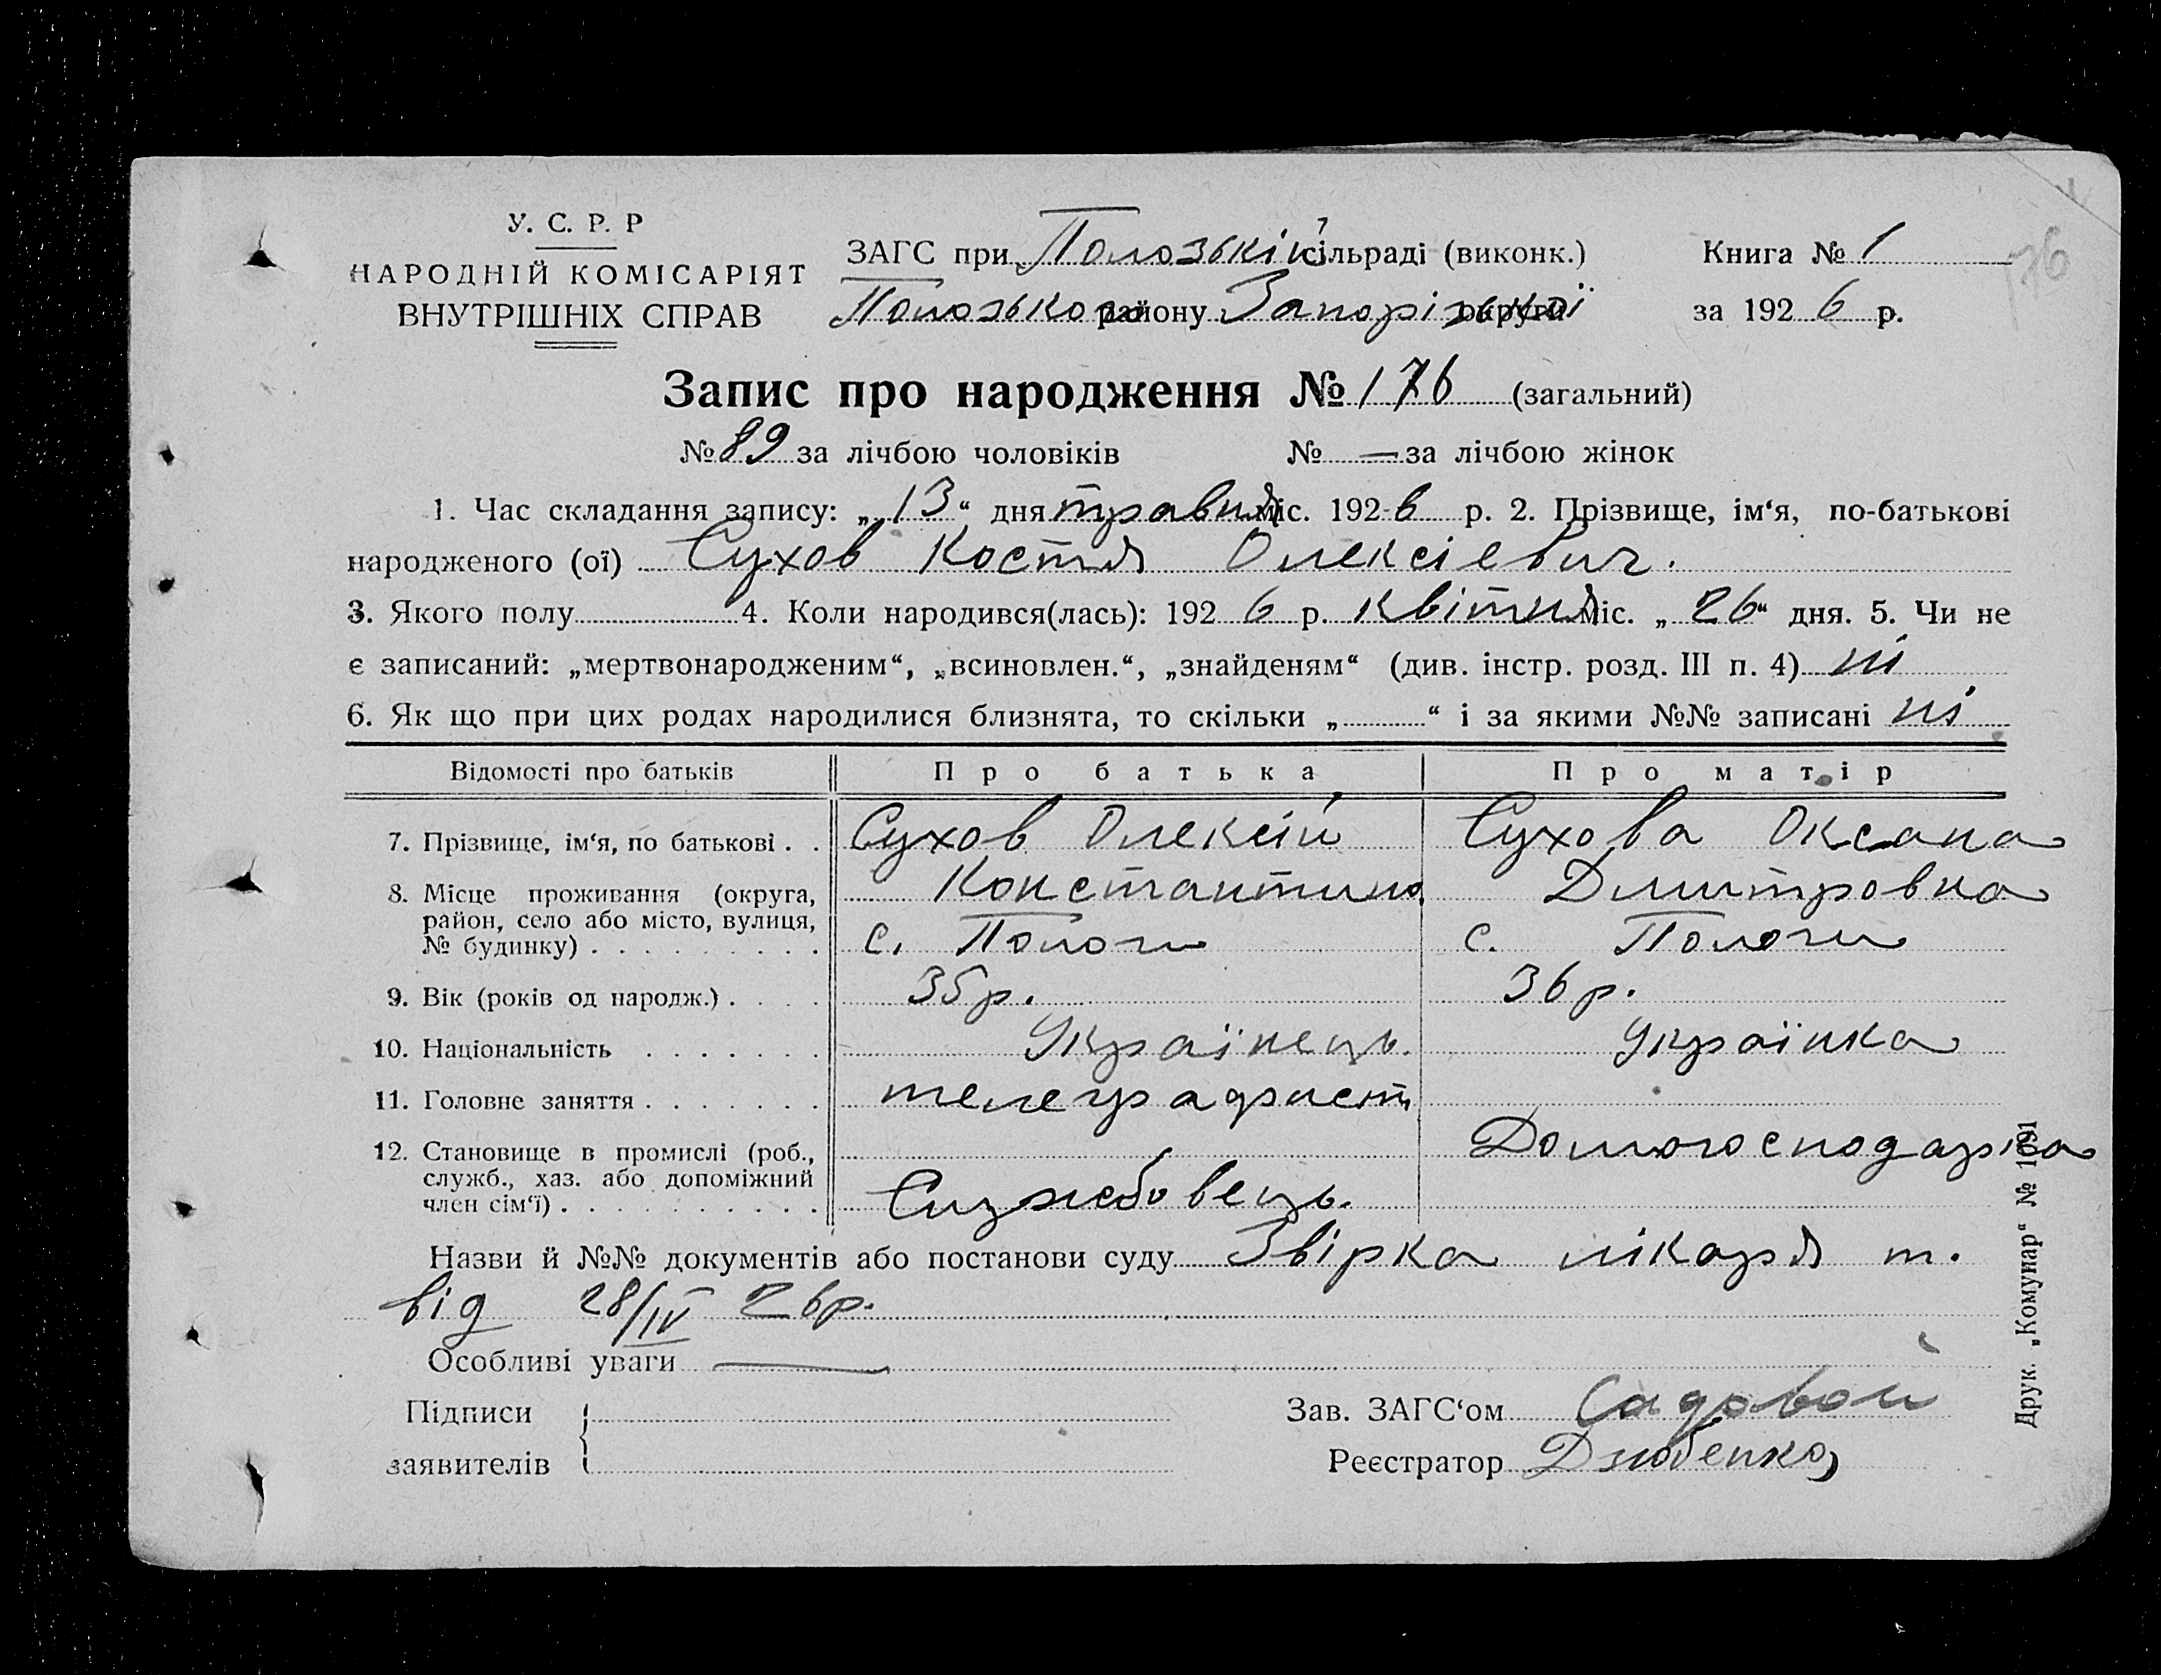 У. С. Р. Р
НАРОДНІЙ КОМІСАРІЯТ
ВНУТРІШНІХ СПРАВ
ЗАГС при Полозькій сільраді (виконк.)
Полозького району Запорізької округи
Книга № 1
за 1926 р.
176
Запис про народження № 176 (загальний)
№ 89 за лічбою чоловіків № — за лічбою жінок
1. Час складання запису: „13“ дня травня міс. 1926 р. 2. Прізвище, ім‘я, по-батькові
народженого (ої) Сухов Костя Олексієвич.
3. Якого полу 4. Коли народився(лась): 1926 р. квітня міс. „26“ дня. 5. Чи не
є записаний: „мертвонародженим“, „всиновлен.“, „знайденям“ (див. інстр. розд. III п. 4) ні
6. Як що при цих родах народилися близнята, то скільки „ “ і за якими №№ записані ні
Відомості про батьків Про батька Про матір
7. Прізвище, ім‘я, по батькові . . Сухов Олексій Сухова Оксана
Константин. Дмитровна
8. Місце проживання (округа,
район, село або місто, вулиця,
№ будинку) . . . . . . . . . с. Пологи с. Пологи
9. Вік (років од народж.) . . . . 35 р. 36 р.
10. Національність . . . . . . . Українець. Українка
11. Головне заняття . . . . . . . телеграфист
12. Становище в промислі (роб.,
служб., хаз. або допоміжний
член сім‘ї) . . . . . . . . . . Службовець. Домогосподарка
Назви й №№ документів або постанови суду Звірка лікаря т.
від 28/IV 26р.
Особливі уваги —
Підписи
заявителів
Зав. ЗАГС‘ом Садовой
Реєстратор Дзюбенко
Друк. „Комунар“ № 1091